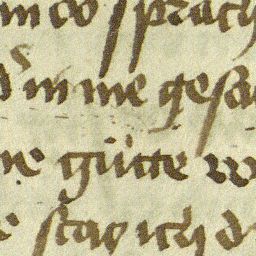 in do sprach
in me gesa
ne gütte w
e stat ich d